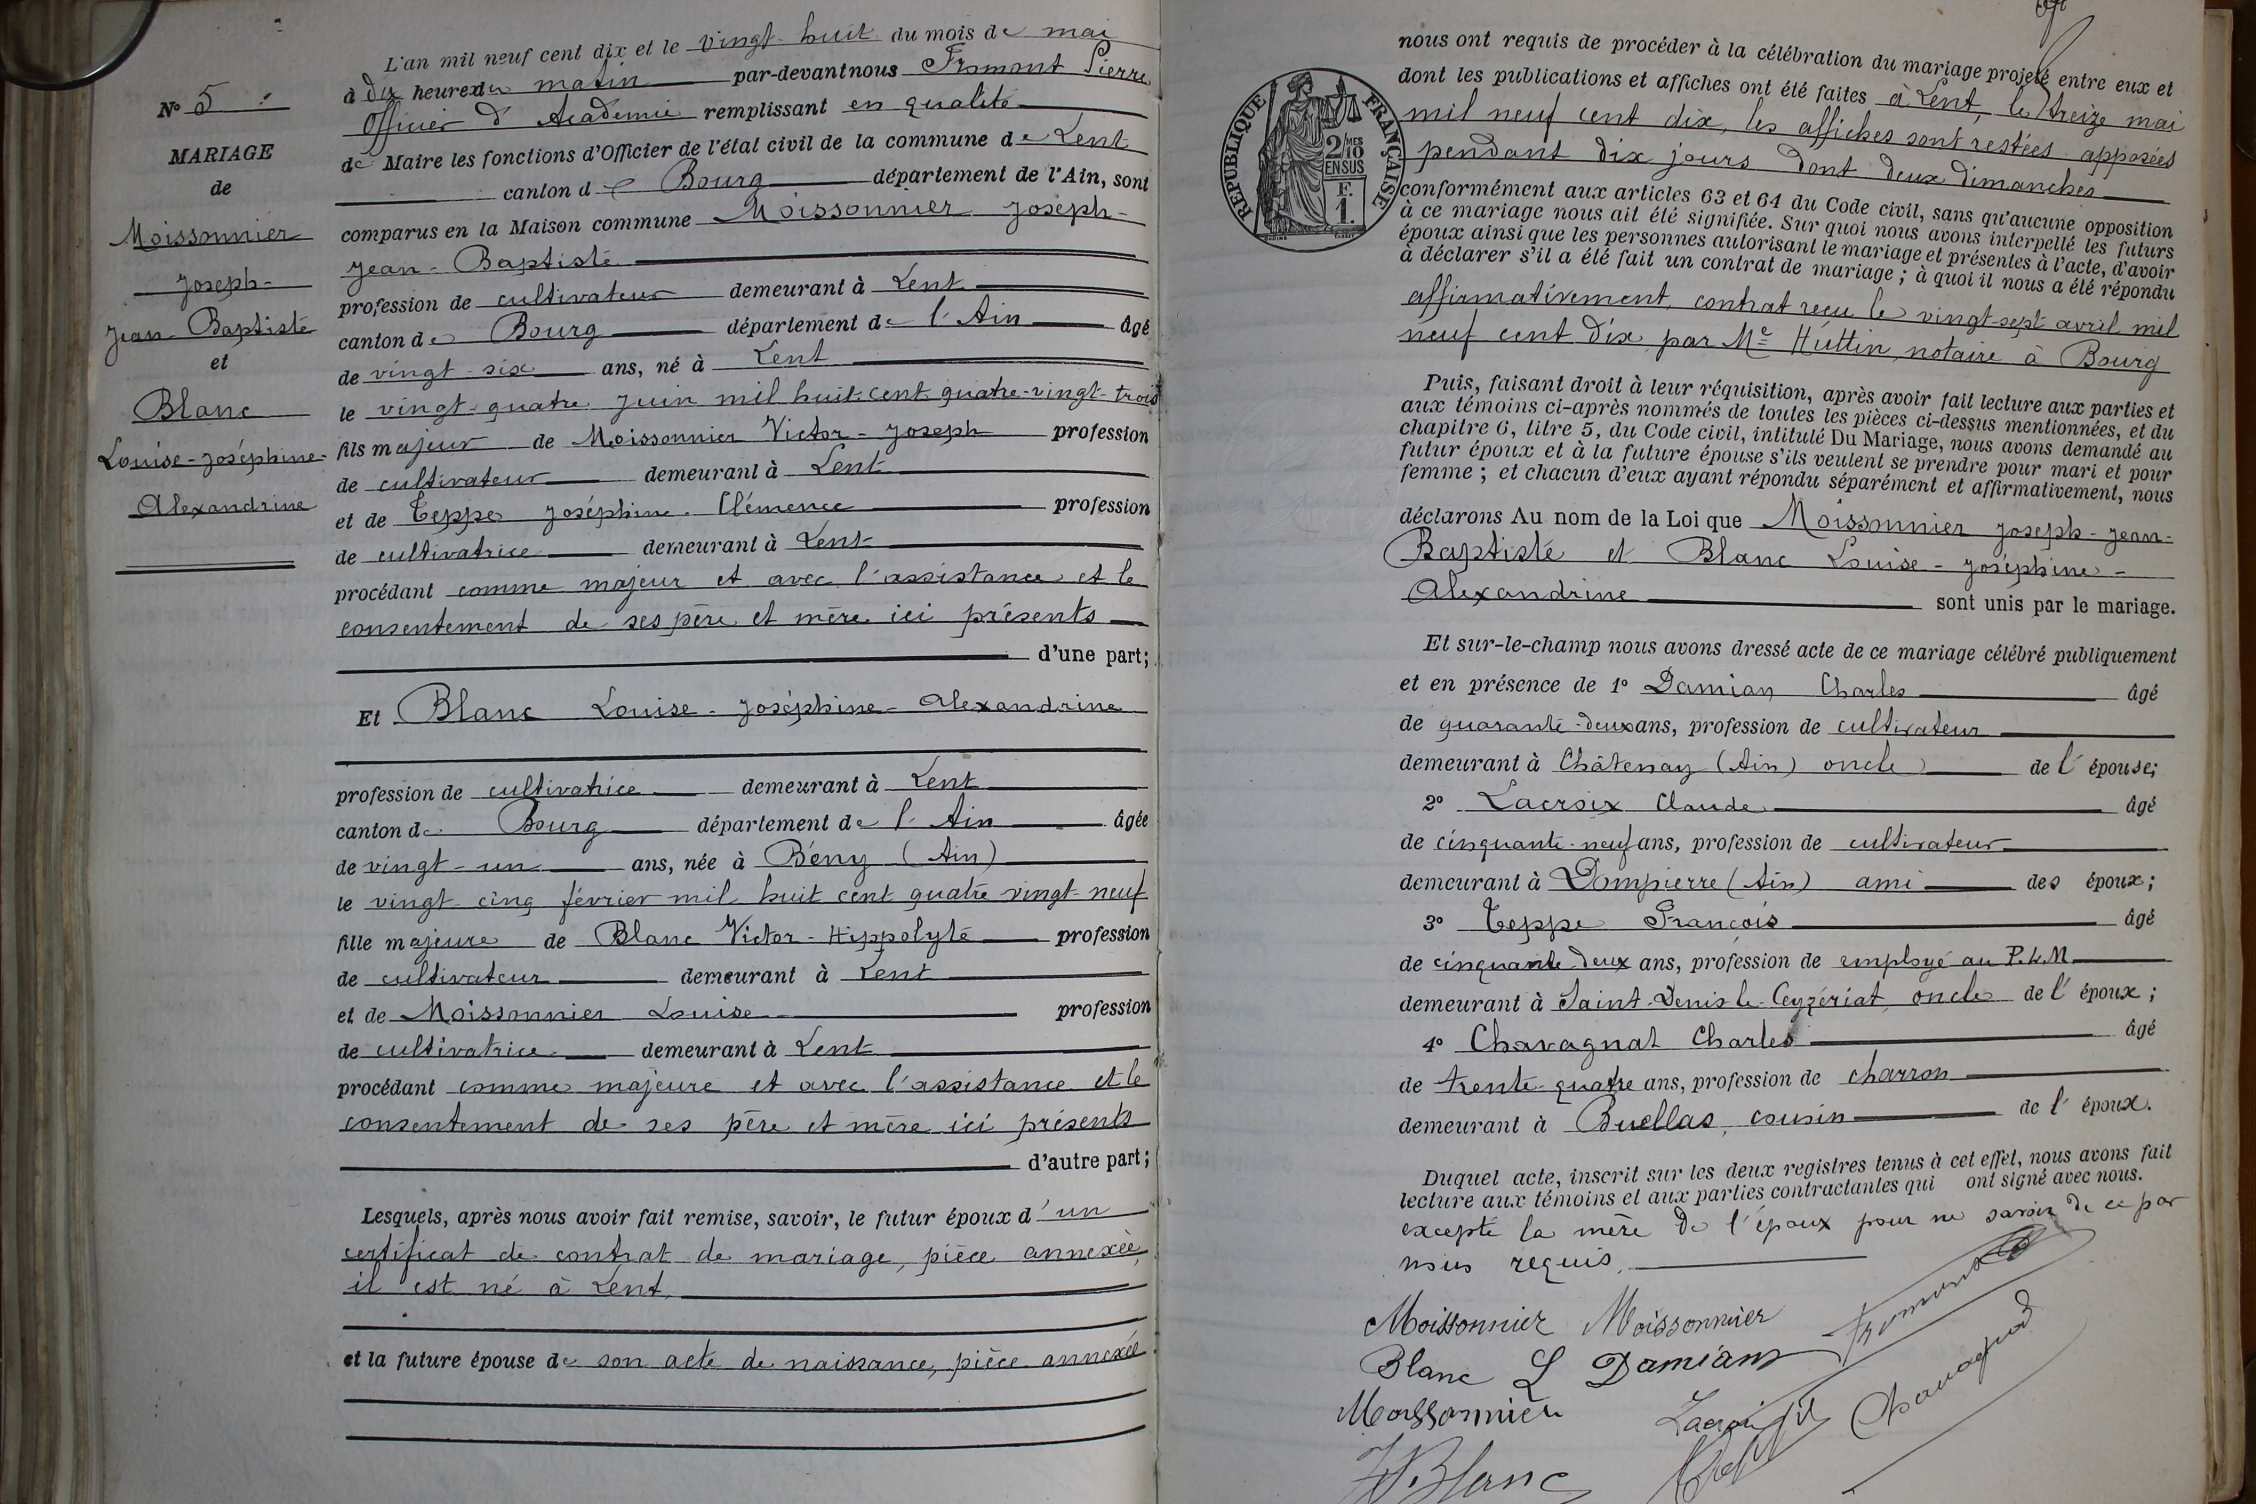 N° 5
MARIAGE
de
Moissonnier
Joseph-
Jean-Baptiste
et
Blanc
Louise-Joséphine-
Alexandrine
L'an mil neuf cent dix et le vingt-huit du mois de mai
à dix heures du matin par-devant nous Fromont Pierre
Officier d'Académie remplissant en qualité
de Maire les fonctions d'Officier de l'état civil de la commune de Lent
canton de Bourg département de l'Ain, sont
comparus en la Maison commune Moissonnier Joseph-
Jean-Baptiste
profession de cultivateur demeurant à Lent
canton de Bourg département de l'Ain âgé
de vingt-six ans, né à Lent
le vingt-quatre juin mil huit-cent quatre-vingt-trois
fils majeur de Moissonnier Victor-Joseph profession
de cultivateur demeurant à Lent
et de Teppe Joséphine-Clémence profession
de cultivatrice demeurant à Lent
procédant comme majeur et avec l'assistance et le
consentement de ses père et mère ici présents
d'une part;
Et Blanc Louise-Joséphine-Alexandrine
profession de cultivatrice demeurant à Lent
canton de Bourg département de l'Ain âgée
de vingt-un ans, née à Bény (Ain)
le vingt-cinq février mil huit cent quatre vingt-neuf
fille majeure de Blanc Victor-Hippolyte profession
de cultivateur demeurant à Lent
et de Moissonnier Louise profession
de cultivatrice demeurant à Lent
procédant comme majeure et avec l'assistance et le
consentement de ses père et mère ici présents
d'autre part;
Lesquels, après nous avoir fait remise, savoir, le futur époux d'un
certificat de contrat de mariage, pièce annexée,
il est né à Lent.
et la future épouse de son acte de naissance, pièce annexée
RÉPUBLIQUE FRANÇAISE
2/MES
10
EN SUS
F.
1.
nous ont requis de procéder à la célébration du mariage projeté entre eux et
dont les publications et affiches ont été faites à Lent, le treize mai
mil neuf cent dix, les affiches sont restées apposées
pendant dix jours dont deux dimanches
conformément aux articles 63 et 64 du Code civil, sans qu'aucune opposition
à ce mariage nous ait été signifiée. Sur quoi nous avons interpellé les futurs
époux ainsi que les personnes autorisant le mariage et présentes à l'acte, d'avoir
à déclarer s'il a été fait un contrat de mariage; à quoi il nous a été répondu
affirmativement, contrat reçu le vingt-sept avril mil
neuf cent dix par Me Huttin, notaire à Bourg
Puis, faisant droit à leur réquisition, après avoir fait lecture aux parties et
aux témoins ci-après nommés de toutes les pièces ci-dessus mentionnées, et du
chapitre 6, titre 5, du Code civil, intitulé Du Mariage, nous avons demandé au
futur époux et à la future épouse s'ils veulent se prendre pour mari et pour
femme; et chacun d'eux ayant répondu séparément et affirmativement, nous
déclarons Au nom de la Loi que Moissonnier Joseph-Jean-
Baptiste et Blanc Louise-Joséphine-
Alexandrine sont unis par le mariage.
Et sur-le-champ nous avons dressé acte de ce mariage célébré publiquement
et en présence de 1° Damian Charles âgé
de quarante-deux ans, profession de cultivateur
demeurant à Châtenay (Ain) oncle de l'épouse;
2° Lacroix Claude âgé
de cinquante-neuf ans, profession de cultivateur
demeurant à Dompierre (Ain) ami des époux;
3° Teppe François âgé
de cinquante-deux ans, profession de employé au P.L.M
demeurant à Saint-Denis-le-Ceyzériat, oncle de l'époux;
4° Chavagnat Charles âgé
de trente-quatre ans, profession de charron
demeurant à Buellas, cousin de l'époux.
Duquel acte, inscrit sur les deux registres tenus à cet effet, nous avons fait
lecture aux témoins et aux parties contractantes qui ont signé avec nous.
excepté la mère de l'époux pour ne savoir de ce par
nous requis.
Moissonnier Moissonnier Fromont
Blanc L Damians Chavagnat
Moissonnier Lacroix
V Blanc